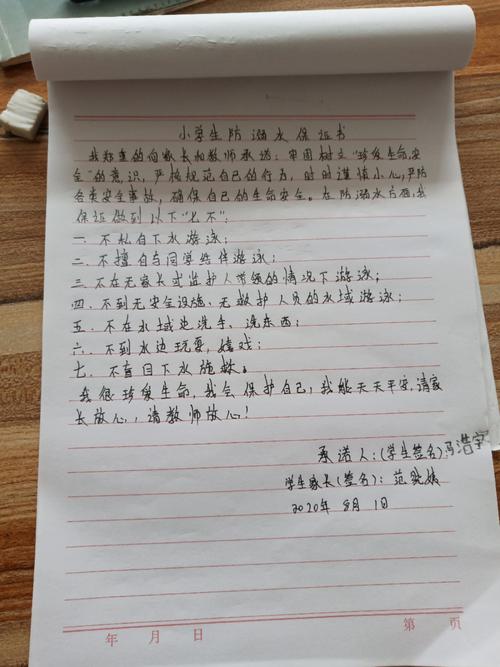 小学生防溺水保证书
我郑重的向家长和教师承诺：牢固树立“珍爱生命，安
全”的意识，严格规范自己的行为，时时谨慎小心，严防
各类安全事故，确保自己的生命安全。在防溺水方面，我
保证做到以下“七不”：
一．不私自下水游泳；
二．不擅自与同学结伴游泳；
三．不在无家长或监护人带领的情况下游泳；
四．不到无安全设施、无救护人员的水域游泳；
五．不在水域边洗手、洗东西；
六．不到水边玩耍，嬉戏；
七．不盲目下水施救。
我很珍爱生命，我会保护自己，我能天天平安，请家
长放心，请教师放心！
承诺人：(学生签名)冯浩宇
学生家长(签名)：范
2020年8月1日
年 月 日 第 页